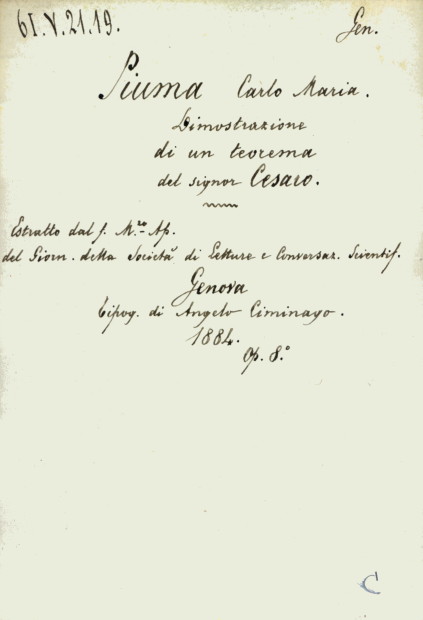 61.V.21.19.
Gen.
Piuma Carlo Maria.
Dimostrazione
di un teorema
del signor Cesaro.
Estratto dal f. M.zo Ap.
del Giorn. della Società di Letture e Conversaz. Scientif.
Genova
Tipog. di Angelo Ciminago.
1884.
Op. 8.°
C